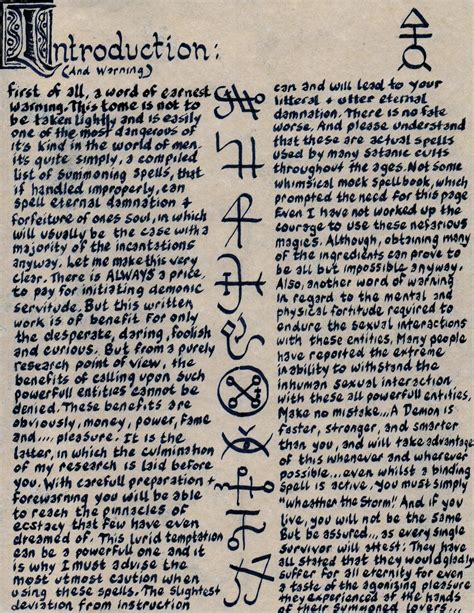 Introduction:
(And Warning)
first of all, a word of earnest
warning. This tome is not to
be taken lightly and is easily
one of the most dangerous of
it's kind in the world of men.
it's quite simply, a compiled
list of summoning spells, that
if handled improperly, can
spell eternal damnation +
forfeiture of ones soul, in which
will usually be the case with a
majority of the incantations
anyway. Let me make this very
clear. There is ALWAYS a price
to pay for initiating demonic
servitude. But this written
work is of benefit for only
the desperate, daring, foolish
and curious. But from a purely
research point of view, the
benefits of calling upon such
powerfull entities cannot be
denied. These benefits are
obviously, money, power, fame
and.... pleasure. It is the
latter, in which the culmination
of my research is laid before
you. With carefull preparation +
forewarning you will be able
to reach the pinnacles of
ecstacy that few have even
dreamed of. This lurid temptation
can be a powerfull one and it
is why I must advise the
most utmost caution when
using these spells. The slightest
deviation from instruction
can and will lead to your
litteral + utter eternal
damnation. There is no fate
worse. And please understand
that these are actual spells
used by many satanic cults
throughout the ages. Not some
whimsical mock spellbook, which
prompted the need for this page
Even I have not worked up the
courage to use these nefarious
magics. Although, obtaining many
of the ingredients can prove to
be all but impossible anyway.
Also, another word of warning
In regard to the mental and
physical fortitude required to
endure the sexual interactions
with these entities. Many people
have reported the extreme
inability to withstand the
inhuman sexual interaction
with these all powerful entities.
Make no mistake... A Demon is
faster, stronger, and smarter
than you, and will take advantage
of this whenever and wherever
possible.... even whilst a binding
spell is active. You must simply
"wheather the Storm". And if you
live, you will not be the same
But be assured... as every single
survivor will attest: They have
all stated that they would gladly
suffer for all eternity for even
a taste of the agonising pleasure
they experienced at the hands
of their summoned lovers.